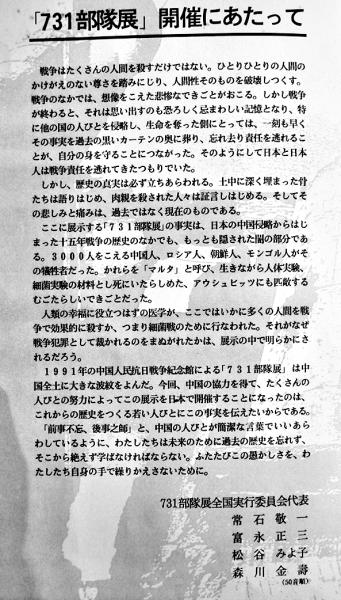 「731部隊展」開催にあたって
戦争はたくさんの人間を殺すだけではない。ひとりひとりの人間の
かけがえのない尊さを踏みにじり、人間性そのものを破壊しつくす。
戦争のなかでは、想像をこえた悲惨なできごとがおこる。しかし戦争
が終わると、それは思い出すのも恐ろしく忌まわしい記憶となり、特
に他の国の人びとを侵略し、生命を奪った側にとっては、一刻も早く
その事実を過去の黒いカーテンの奥に葬り、忘れ去り責任を逃れるこ
とが、自分の身を守ることにつながった。そのようにして日本と日本
人は戦争責任を逃れてきたつもりでいた。
しかし、歴史の真実は必ず立ちあらわれる。土中に深く埋まった骨
たちは語りはじめ、肉親を殺された人々は証言しはじめる。そしてそ
の悲しみと痛みは、過去ではなく現在のものである。
ここに展示する「731部隊」の事実は、日本の中国侵略からはじ
まった十五年戦争の歴史のなかでも、もっとも隠された闇の部分であ
る。3000人をこえる中国人、ロシア人、朝鮮人、モンゴル人がそ
の犠牲者だった。かれらを「マルタ」と呼び、生きながら人体実験、
細菌実験の材料とし死にいたらしめた、アウシュビッツにも匹敵する
むごたらしいできごとだった。
人類の幸福に役立つはずの医学が、ここではいかに多くの人間を戦
争で効果的に殺すか、つまり細菌戦のために行なわれた。それがなぜ
戦争犯罪として裁かれるのをまぬがれたかは、展示の中で明らかにさ
れるだろう。
1991年の中国人民抗日戦争紀念館による「731部隊展」は中
国全土に大きな波紋をよんだ。今回、中国の協力を得て、たくさんの
人びとの努力によってこの展示を日本で開催することになったのは、
これからの歴史をつくる若い人びとにこの事実を伝えたいからである。
「前事不忘、後事之師」と、中国の人びとが簡潔な言葉でいいあら
わしているように、わたしたちは未来のために過去の歴史を忘れず、
そこから絶えず学ばなければならない。ふたたびこの愚かしさを、わ
たしたち自身の手で繰りかえさないために。
731部隊展全国実行委員会代表
常石敬一
富永正三
松谷みよ子
森川金壽
(50音順)